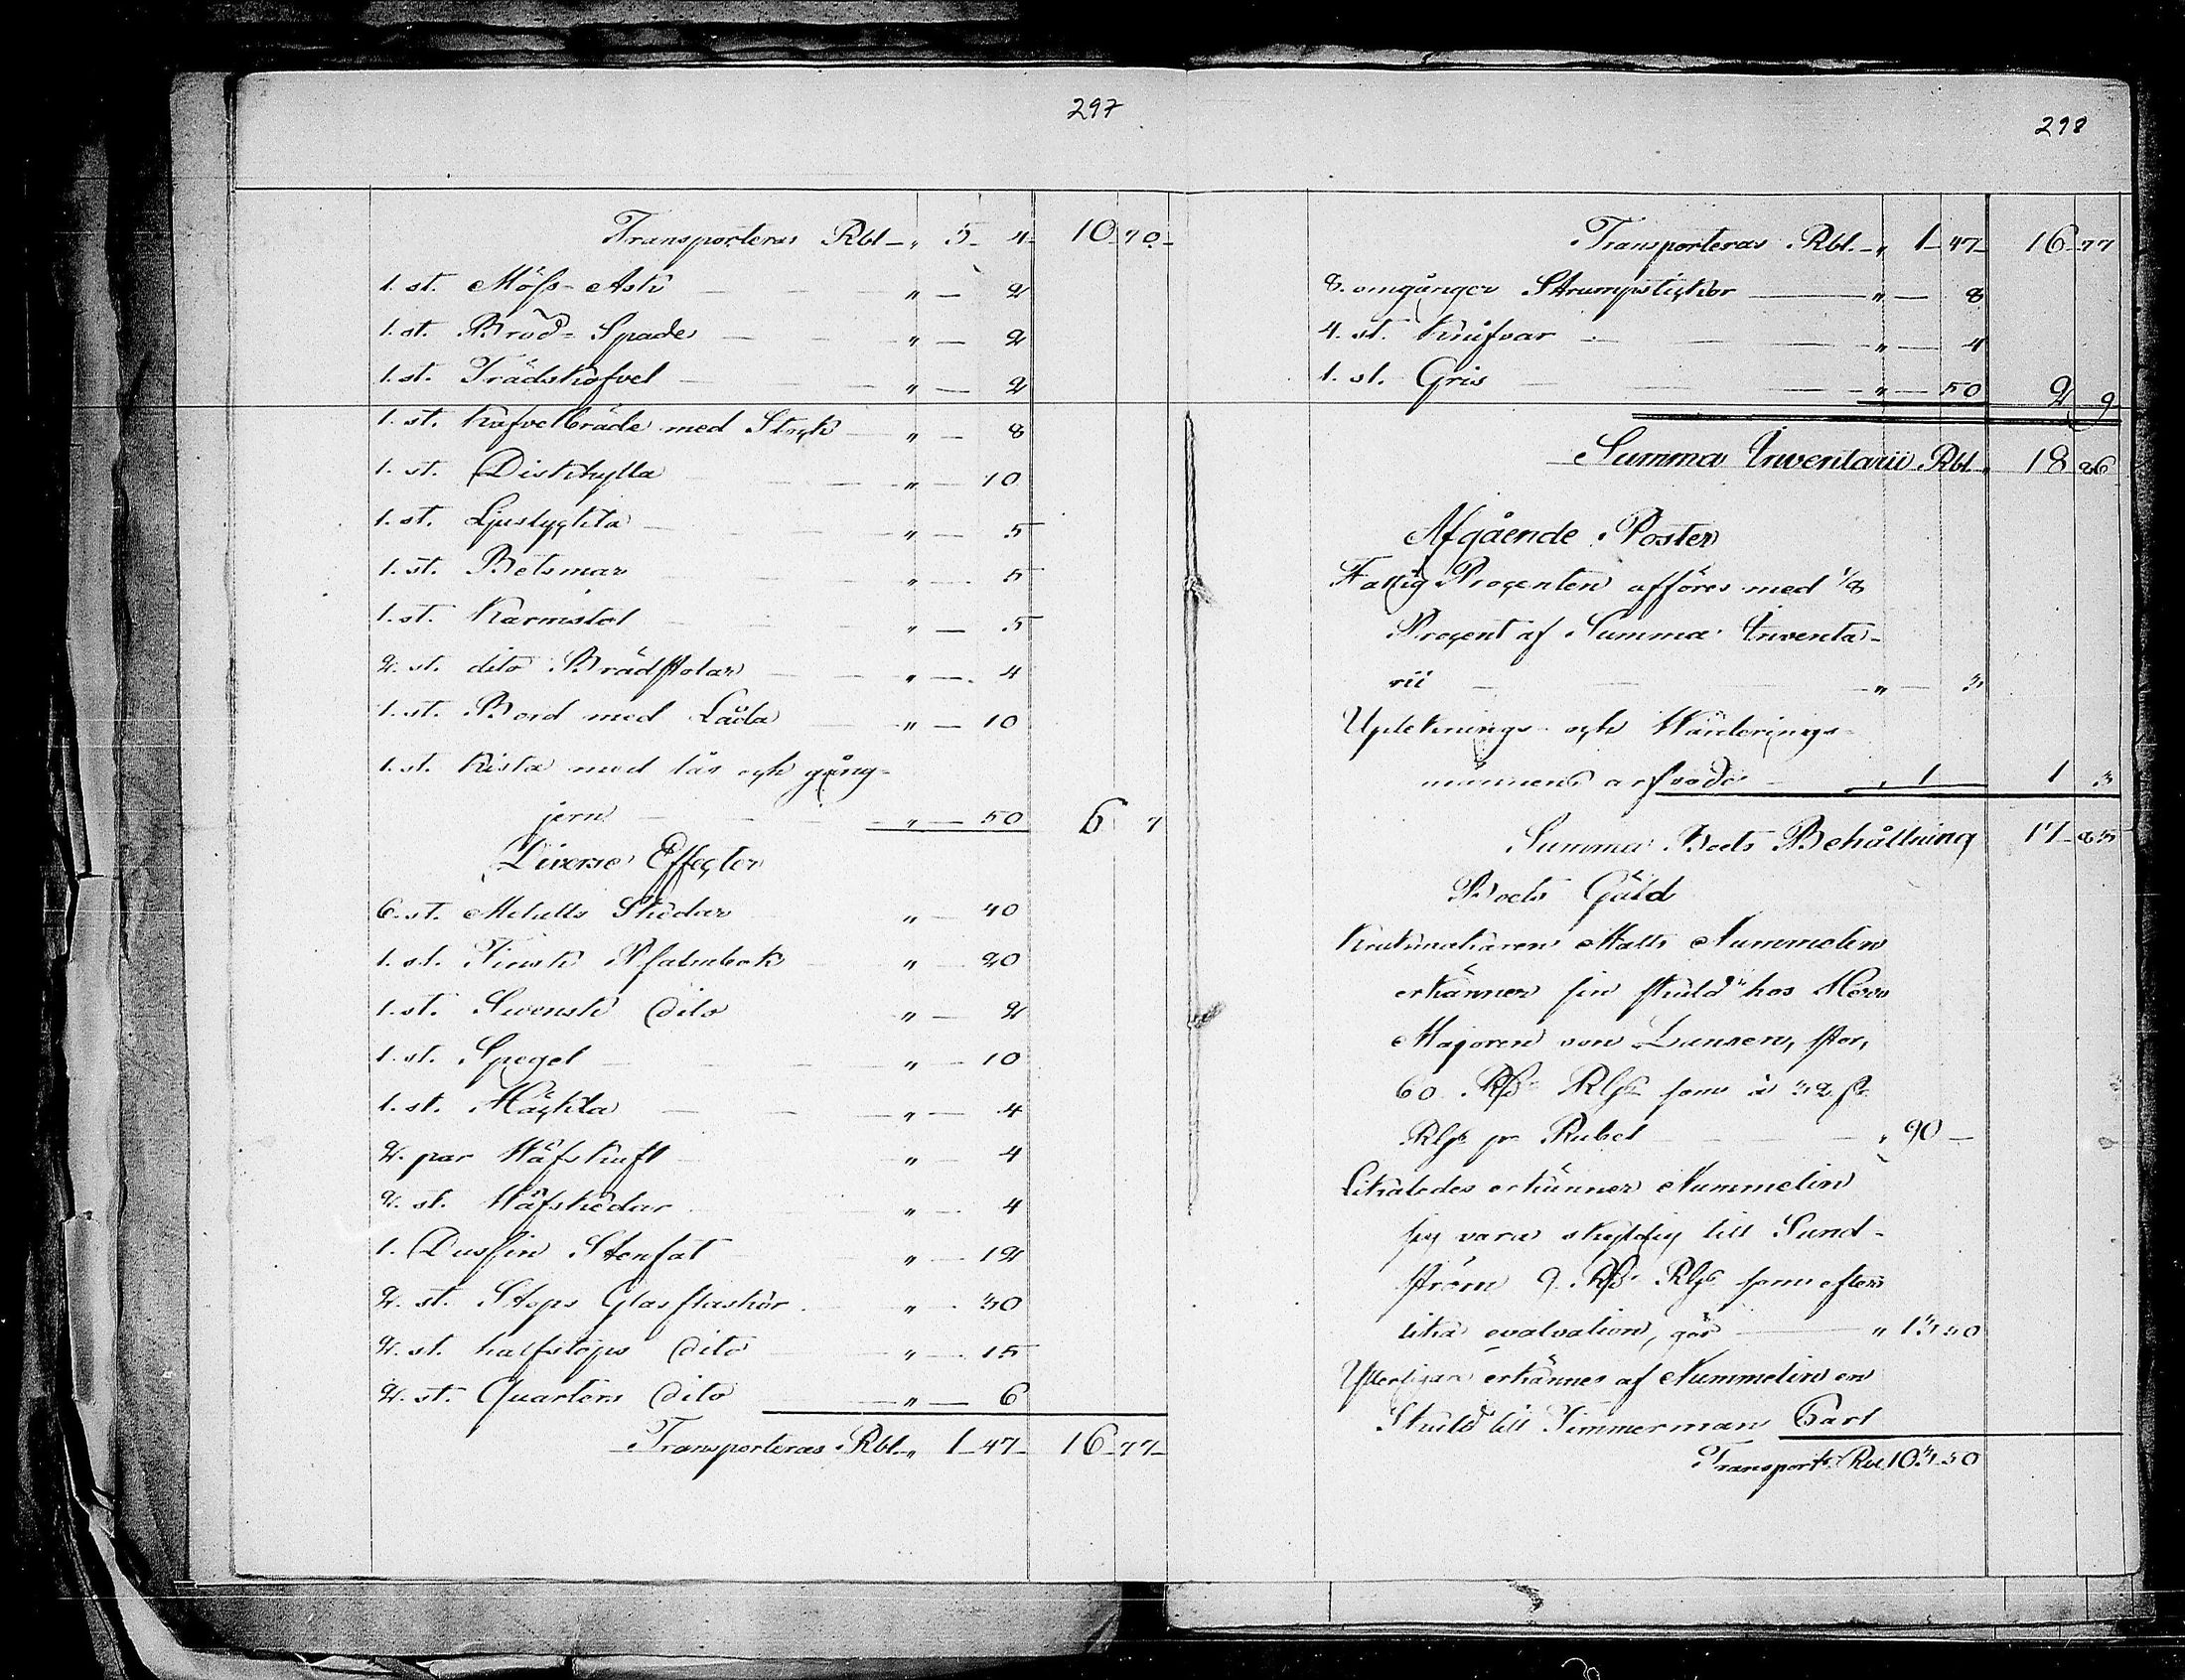 297
Transporteras Rbl „ 5 4 10 70
1. st. Möss-Ask „ — 2
1. st. Bröd-Spade „ — 2
1. st. Trädskofvel „ — 2
1. st. Kafvelbräde med Stock „ — 8
1. st. Diskhylla „ — 10
1. st. Ljuslyckta „ — 5
1. st. Betsmar „ — 5
1. st. Karmstol „ — 5
2. st. dito Brädstolar „ — 4
1. st. Bord med Låda „ — 10
1. st. Kista med lås och gång-
jern „ — 50 6 7
Diverse Effecter
6. st. Metalls Skedar „ — 40
1. st. Finsk Psalmbok „ — 20
1. st. Swensk dito „ — 2
1. st. Spegel „ — 10
1. st. Häckla „ — 4
2. par Wäfskaft „ — 4
2. st. Wäfskedar „ — 4
1. Dussin Stenfat „ — 12
2. st. Stops Glasflaskor „ — 30
2. st. halfstops dito „ — 15
2. st. Quarters dito „ — 6
Transporteras Rbl. „ 1 47 16 77
298
Transporteras Rbl. „ 1 47 16 77
8. omgångor Strumpstickor „ — 8
4. st. Knifvar „ — 4
1. st. Gris „ — 50 2 9
Summa Inventarii Rbl. 18 86
Afgående Poster
Fattig Procenten afföres med 1/8
Procent af Summa Inventa-
rii „ — 3
Upteknings- och Wärderings-
männens arfvode „ 1 1 3
Summa Boets Behållning 17 83
Boets Gäld
Krukmakaren Matts Nummelin
erkänner sin skuld hos Herr
Majoren von stor,
60 Rß Rlgs som à 32 ß
Rlgs pr Rubel „ 90 —
Likaledes erkänner Nummelin
sig vara skyldig till Sund-
ström 9. Rß Rlgs som efter
lika evalvation, gör „ 13 50
Ytterligare erkännes af Nummelin en
Skuld till Timmerman Carl
Transport Rbl 103 50